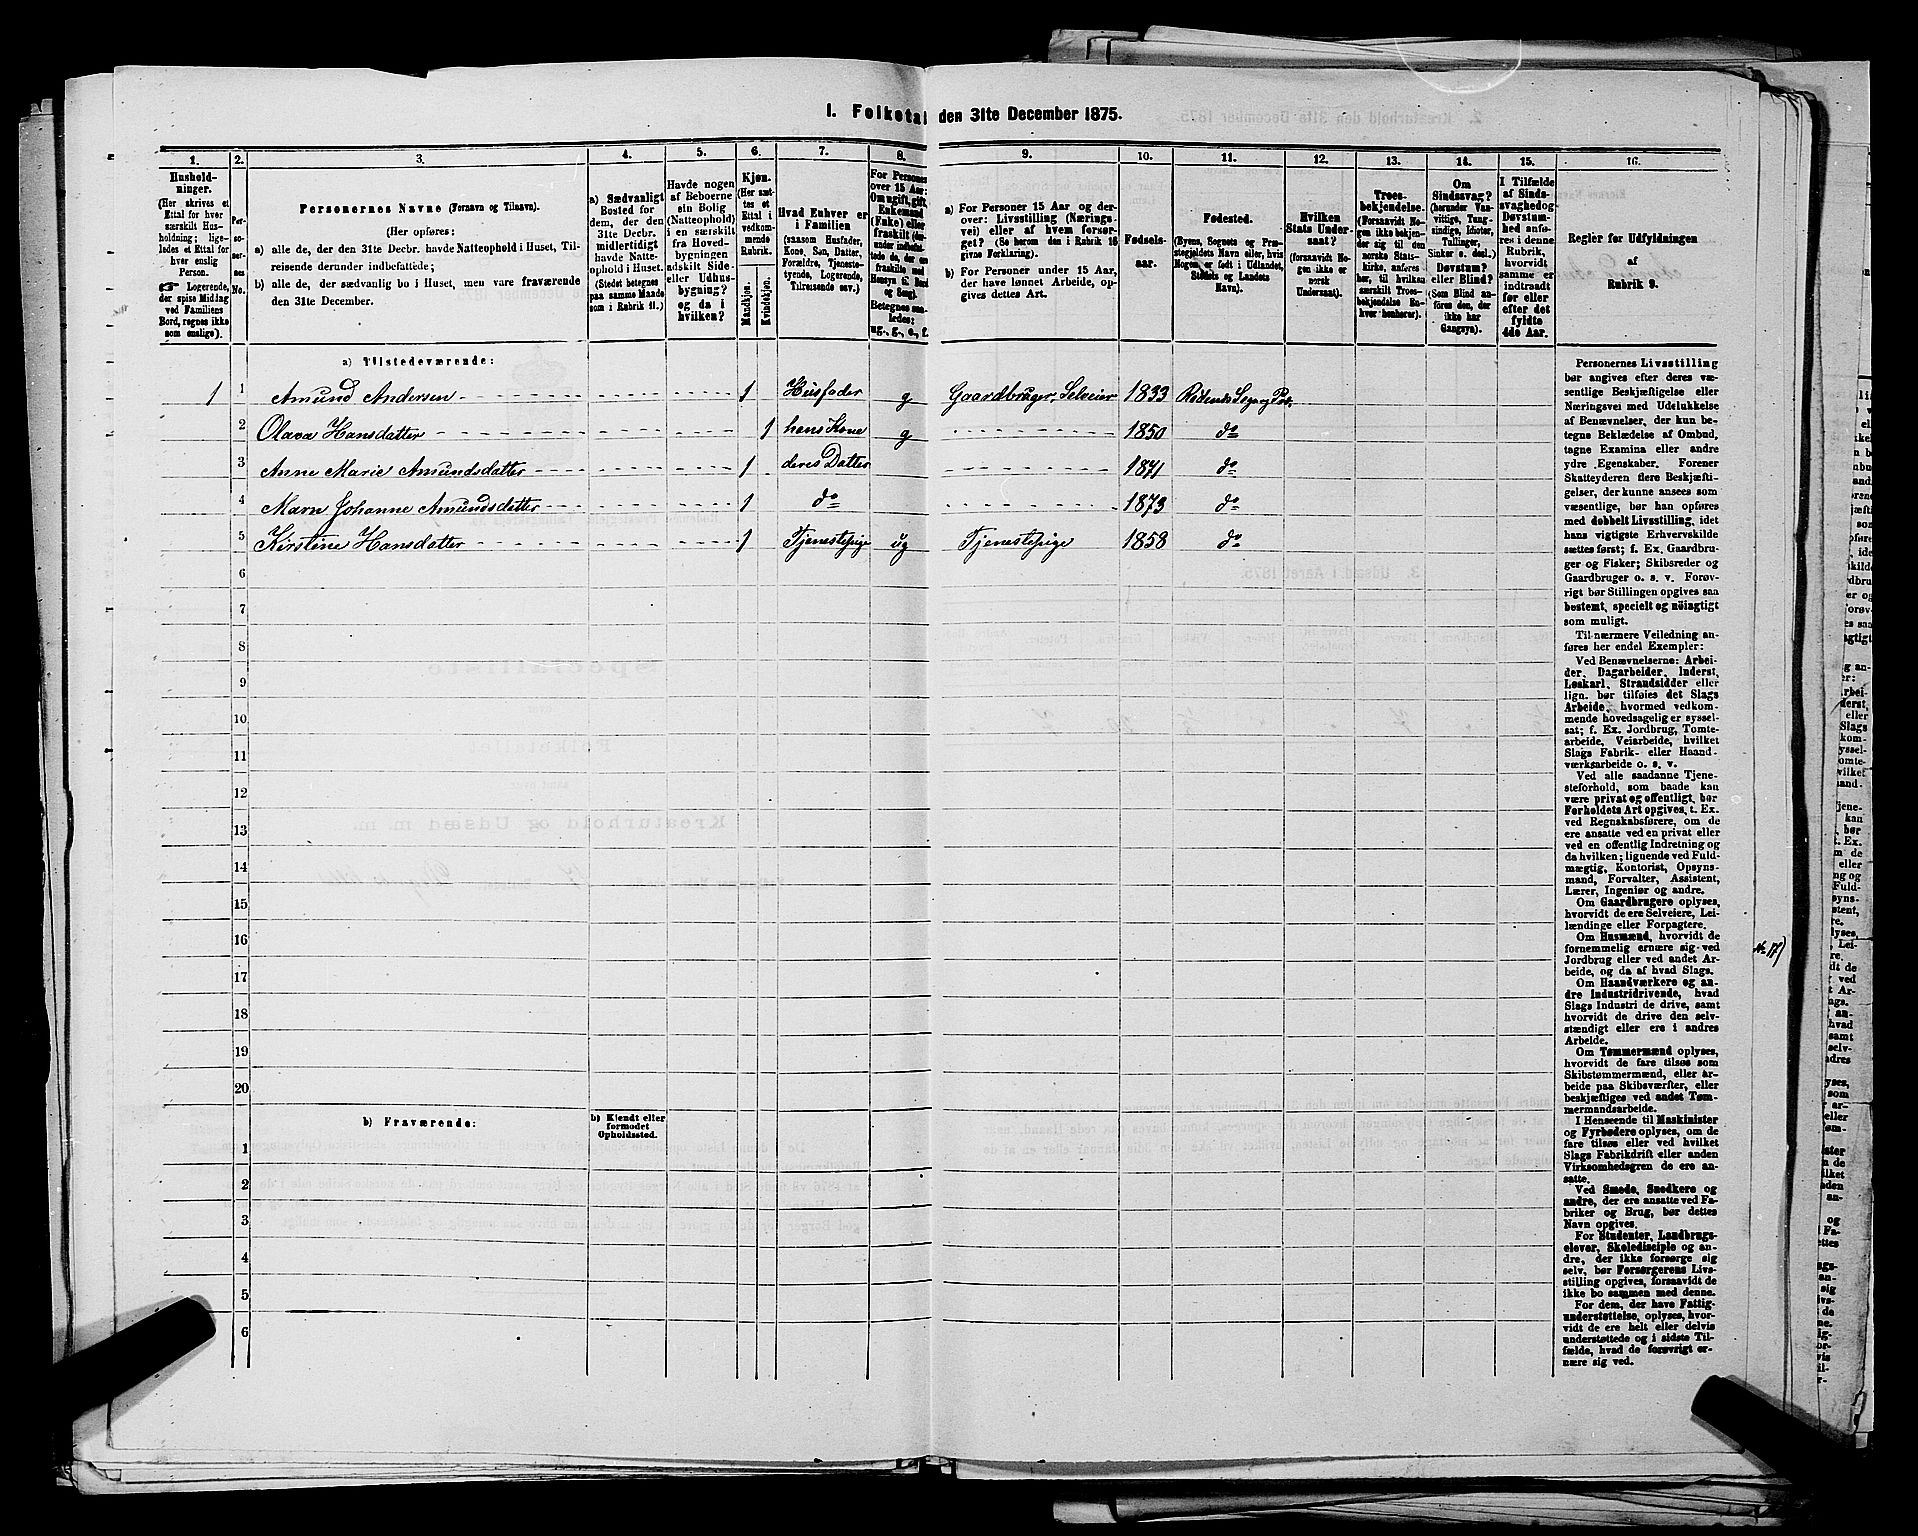 I. Folketal den 31te December 1875.
1. 2. 3. 4. 5. 6. 7. 8. 9. 10. 11. 12. 13. 14. 15. 16.
Husholdninger.
(Her skrives et
Ettal for hver
særskilt Husholdning;
ligeledes et Ettal for
hver enslig
Person.
☞ Logerende,
der spise Middag
ved Familiens
Bord, regnes ikke
som enslige).
Personernes No.
Personernes Navne (Fornavn og Tilnavn).
(Her opføres:
a) alle de, der den 31te Decbr. havde Natteophold i Huset, Tilreisende derunder indbefattede;
b) alle de, der sædvanlig bo i Huset, men vare fraværende
den 31te December.
a) Sædvanligt
Bosted for
dem, der den
31te Decbr.
midlertidigt
havde Natteophold i Huset.
(Stedet betegnes
paa samme Maade
som i Rubrik 11.)
Havde nogen
af Beboerne
sin Bolig
(Natteophold)
i en særskilt
fra Hovedbygningen
adskilt Side-
eller Udhusbygning?
og da i
hvilken?
Kjøn.
(Her sættes et
Ettal i
vedkommende
Rubrik.
Mandkjøn.
Kvindekjøn.
Hvad Enhver er
i Familien
(saasom Husfader,
Kone, Søn, Datter,
Forældre, Tjenestetyende, Logerende,
Tilreisende osv.)
For Personer
over 15 Aar:
Om ugift, gift,
Enkemand
(Enke) eller
fraskilt
Betegnes saaledes:
ug., g., e., f.
a) For Personer 15 Aar og derover: Livsstilling (Næringsvei) eller af hvem forsørget? (Se herom den i Rubrik 16
givne Forklaring).
b) For Personer under 15 Aar,
der have lønnet Arbeide, opgives dettes Art.
Fødselsaar.
Fødested.
(Byens, Sognets og Præstegjeldets Navn eller, hvis
Nogen er født i Udlandet,
Stedets og Landets
Navn).
Hvilken
Stats Undersaat?
(forsaavidt Nogen ikke er
norsk
Undersaat).
Troesbekjendelse.
(Forsaavidt Nogen ikke bekjender sig til den
norske Statskirke, anføres
her, til hvilken
særskilt Troesbekjendelse Enhver henhører).
Om
Sindssvag?
(herunder Vanvittige, Tungsindige, Idioter,
Tullinger,
Sinker o. desl.)
Døvstum?
eller Blind?
(Som Blind anføres den, der
ikke har
Gangsyn).
I Tilfælde
af Sindssvaghed og
Døvstumhed anføres i denne
Rubrik,
hvorvidt
samme er
indtraadt
før eller
efter det
fyldte
4de Aar.
Regler for Udfyldningen
af
Rubrik 9.
a) Tilstedeværende:
1 1 Amund Andersen 1 Husfader g Gaardbruger, Selveier 1833 Rødenes Sogn og Pst.
2 Olava Hansdatter 1 hans Kone g 1850 do
3 Anne Marie Amundsdatter 1 deres Datter 1871 do
4 Maren Johanne Amundsdatter 1 do 1873 do
5 Kirstine Hansdatter 1 Tjenestepige ug Tjenestepige 1858 do
6
7
8
9
10
11
12
13
14
15
16
17
18
19
20
b) Fraværende:
b) Kjendt eller
formodet
Opholdssted.
1
2
3
4
5
6
Personernes Livsstilling
bør angives efter deres væsentlige Beskjæftigelse eller
Næringsvei med Udelukkelse
af Benævnelser, der kun betegne Beklædelse af Ombud,
tagne Examina eller andre
ydre Egenskaber. Forener
Skatteyderen flere Beskjæftigelser, der kunne ansees som
væsentlige, bør han opføres
med dobbelt Livsstilling, idet
hans vigtigste Erhvervskilde
sættes først; f. Ex. Gaardbruger og Fisker; Skibsreder og
Gaardbruger o. s. v. Forøvrigt bør Stillingen opgives saa
bestemt, specielt og nöiagtigt
som muligt.
Til nærmere Veiledning anføres her endel Exempler:
Ved Benævnelserne: Arbeider, Dagarbeider, Inderst,
Løskarl, Strandsidder eller
lign. bør tilføies det Slags
Arbeide, hvormed vedkommende hovedsagelig er sysselsat; f. Ex. Jordbrug, Tomtearbeide, Veiarbeide, hvilket
Slags Fabrik- eller Haandværksarbeide o. s. v.
Ved alle saadanne Tjenesteforhold, som baade kan
være privat og offentligt, bør
Forholdets Art opgives, t. Ex.
ved Regnskabsførere, om de
ere ansatte ved en privat eller
ved en offentlig Indretning og
da hvilken; lignende ved Fuldmægtig, Kontorist, Opsynsmand, Forvalter, Assistent,
Lærer, Ingeniør og andre.
Om Gaardbrugere oplyses,
hvorvidt de ere Selveiere, Leilændinge eller Forpagtere.
Om Husmænd, hvorvidt de
fornemmelig ernære sig ved
Jordbrug eller ved andet Arbeide, og da af hvad Slags.
Om Haandværkere og andre Industridrivende, hvad
Slags Industri de drive, samt
hvorvidt de drive den selvstændigt eller ere i andres
Arbeide.
Om Tømmermænd oplyses,
hvorvidt de fare tilsøs som
Skibstømmermænd, eller arbeide paa Skibsværfter, eller
beskjæftiges ved andet Tømmermandsarbeide.
I Henseende til Maskinister
og Fyrbødere oplyses, om de
fare tilsøs eller ved hvilket
Slags Fabrikdrift eller anden
Virksomhedsgren de ere ansatte.
Ved Smede, Snedkere og
andre, der ere ansatte ved Fabriker og Brug, bør dettes
Navn opgives.
For Studenter, Landbrugselever, Skoledisciple og andre, der ikke forsørge sig
selv, bør Forsørgerens Livsstilling opgives, forsaavidt de
ikke bo sammen med denne.
For dem, der have Fattigunderstøttelse, oplyses, hvorvidt de ere helt eller delvis
understøttede og i sidste Tilfælde, hvad de forøvrigt ernære sig ved.